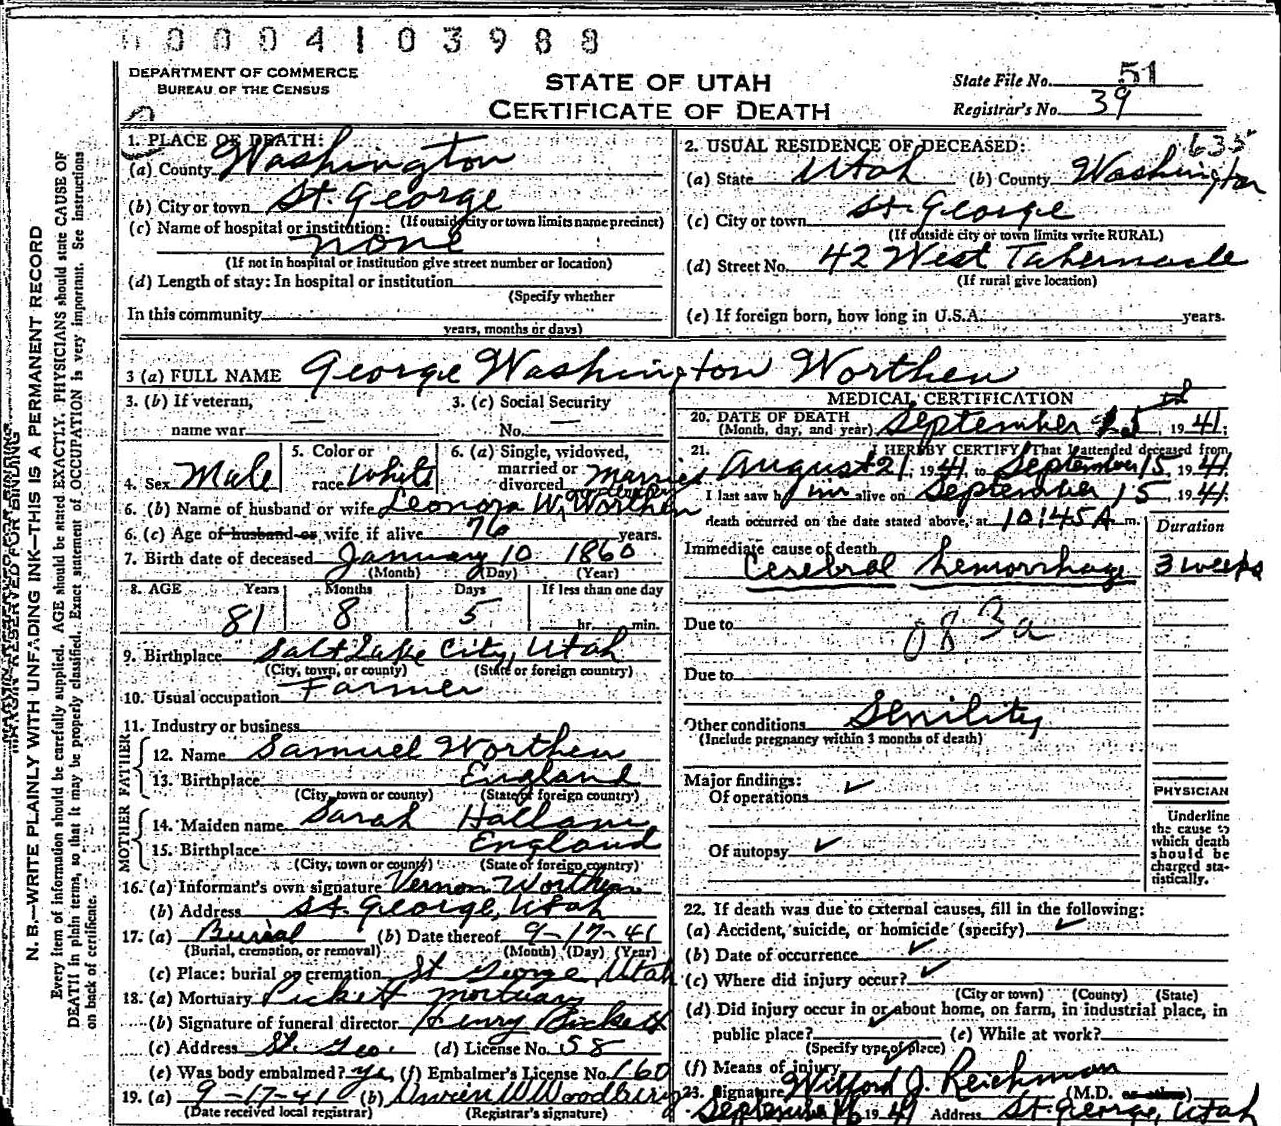 0004103988
DEPARTMENT OF COMMERCE
BUREAU OF THE CENSUS
STATE OF UTAH
CERTIFICATE OF DEATH
State File No. 51
Registrar's No. 39
1. PLACE OF DEATH:
(a) County Washington
(b) City or town St. George
(If outside city or town limits name precinct)
(c) Name of hospital or institution:
none
(If not in hospital or institution give street number or location)
(d) Length of stay: In hospital or institution
(Specify whether
In this community
years, months or days)
2. USUAL RESIDENCE OF DECEASED: 635
(a) State Utah (b) County Washington
(c) City or town St. George
(If outside city or town limits write RURAL)
(d) Street No. 42 West Tabernacle
(If rural give location)
(e) If foreign born, how long in U.S.A. years.
3 (a) FULL NAME George Washington Worthen
3. (b) If veteran, 3. (c) Social Security
name war — No. —
4. Sex Male 5. Color or race White 6. (a) Single, widowed, married or divorced married
6. (b) Name of husband or wife Leonora W. Worthen
6. (c) Age of husband or wife if alive 76 years.
7. Birth date of deceased January 10 1860
(Month) (Day) (Year)
8. AGE Years Months Days If less than one day
81 8 5 hr. min.
9. Birthplace Salt Lake City, Utah
(City, town, or county) (State or foreign country)
10. Usual occupation Farmer
11. Industry or business
FATHER
12. Name Samuel Worthen
13. Birthplace England
(City, town or county) (State of foreign country)
MOTHER
14. Maiden name Sarah Hallam
15. Birthplace England
(City, town or county) (State of foreign country)
16. (a) Informant's own signature Vernon Worthen
(b) Address St. George, Utah
17. (a) Burial (b) Date thereof 9-17-41
(Burial, cremation, or removal) (Month) (Day) (Year)
(c) Place: burial or cremation St George, Utah
18. (a) Mortuary Pickett Mortuary
(b) Signature of funeral director Henry Pickett
(c) Address St. Geo. (d) License No. 58
(e) Was body embalmed? yes (f) Embalmer's License No. 160
19. (a) 9-17-41 (b) Woodbury
(Date received local registrar) (Registrar's signature)
MEDICAL CERTIFICATION
20. DATE OF DEATH
(Month, day, and year) September 15, 1941;
21. I HEREBY CERTIFY, That I attended deceased from
August 21, 1941 to September 15, 1941
I last saw him alive on September 15, 1941.
death occurred on the date stated above, at 10:45 A. m.
Duration
Immediate cause of death
Cerebral hemorrhage 3 weeks
Due to 083a
Due to
Other conditions Senility
(Include pregnancy within 3 months of death)
Major findings:
Of operations ✓
Of autopsy ✓
PHYSICIAN
Underline
the cause to
which death
should be
charged sta-
tistically.
22. If death was due to external causes, fill in the following:
(a) Accident, suicide, or homicide (specify) ✓
(b) Date of occurrence ✓
(c) Where did injury occur? ✓
(City or town) (County) (State)
(d) Did injury occur in or about home, on farm, in industrial place, in
public place? ✓ (e) While at work?
(Specify type of place)
(f) Means of injury
23. Signature Wilford J. Reichman (M.D. or other)
September 16 1941 Address St. George, Utah
MARGIN RESERVED FOR BINDING
N. B.—WRITE PLAINLY WITH UNFADING INK—THIS IS A PERMANENT RECORD
Every item of information should be carefully supplied. AGE should be stated EXACTLY. PHYSICIANS should state CAUSE OF
DEATH in plain terms, so that it may be properly classified. Exact statement of OCCUPATION is very important. See instructions
on back of certificate.